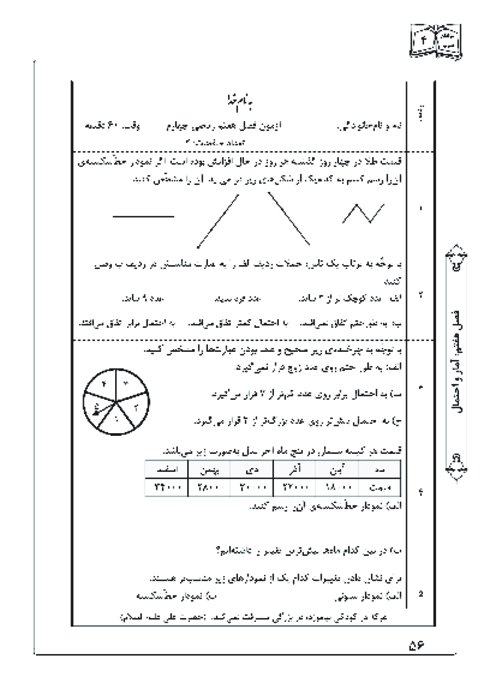 ۴
به نام خدا
نام و نام‌خانوادگی: آزمون فصل هفتم ریاضی چهارم وقت: ۶۰ دقیقه
تعداد صفحات: ۲
قیمت طلا در چهار روز گذشته هر روز در حال افزایش بوده است اگر نمودار خط‌شکسته‌ی
آن‌را رسم کنیم به کدام‌یک از شکل‌های زیر در می‌آید آن را مشخص کنید.
۱
با توجّه به پرتاب یک تاس، جملات ردیف الف را به عبارت مناسبش در ردیف ب وصل
کنید.
۲
الف- عدد کوچک‌تر از ۳ بیاید. عدد فرد بیاید. عدد ۹ بیاید.
ب- به طور حتم اتفاق نمی‌افتد. به احتمال کمتر اتفاق می‌افتد. به احتمال برابر اتفاق می‌افتد.
با توجه به چرخنده‌ی زیر صحیح و غلط بودن عبارت‌ها را مشخص کنید.
الف: به طور حتم روی عدد زوج قرار نمی‌گیرد.
ب) به احتمال برابر روی عدد کم‌تر از ۲ قرار می‌گیرد.
ج) به احتمال بیش‌تر روی عدد بزرگ‌تر از ۲ قرار می‌گیرد.
۳
قیمت هر کیسه سیمان در پنج ماه آخر سال به‌صورت زیر می‌باشد.
ماه آبان آذر دی بهمن اسفند
قیمت
۴
الف) نمودار خط‌شکسته‌ی آن‌را رسم کنید.
ب) در بین کدام ماه‌ها بیش‌ترین تغییر را داشته‌ایم؟
برای نشان دادن تغییرات کدام یک از نمودارهای زیر مناسب‌تر هستند.
۵
الف) نمودار ستونی ب) نمودار خط‌شکسته
هرکه در کودکی نیاموزد، در بزرگی پیشرفت نمی‌کند. (حضرت علی علیه السلام)
فصل هفتم: آمار و احتمال
۵۶